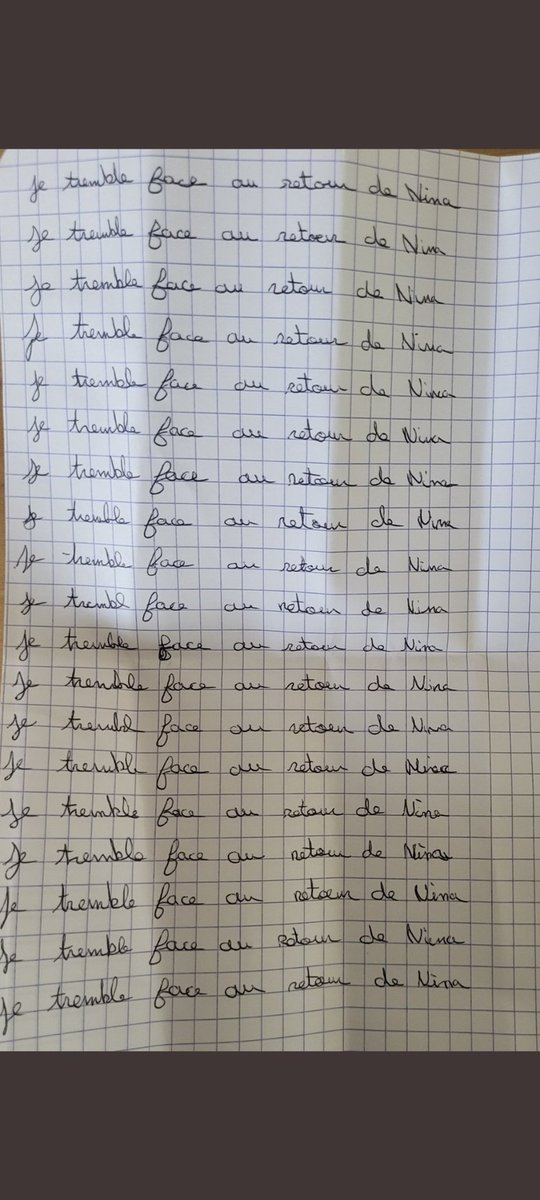 Je tremble face au retour de Nina
Je tremble face au retour de Nina
Je tremble face au retour de Nina
Je tremble face au retour de Nina
Je tremble face au retour de Nina
Je tremble face au retour de Nina
Je tremble face au retour de Nina
Je tremble face au retour de Nina
Je tremble face au retour de Nina
Je trembl face au retour de Nina
Je tremble face au retour de Nina
Je tremble face au retour de Nina
Je trembl face au retour de Nina
Je tremble face au retour de Nina
Je tremble face au retour de Nina
Je tremble face au retour de Nina
Je tremble face au retour de Nina
Je tremble face au retour de Nina
Je tremble face au retour de Nina